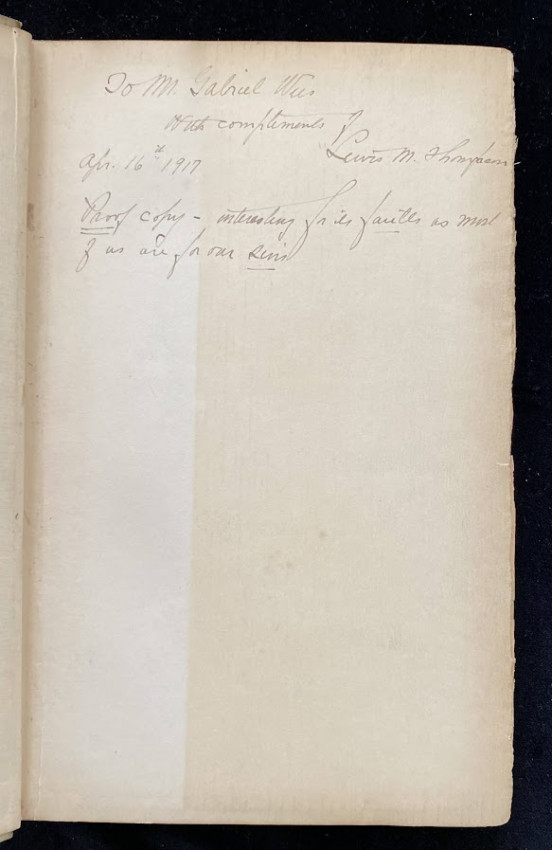 To Mr. Gabriel Wies
With complements of
Lewis M. Thompson
Apr. 16th 1917
Proof copy - interesting for its faults as most
of us are for our sins